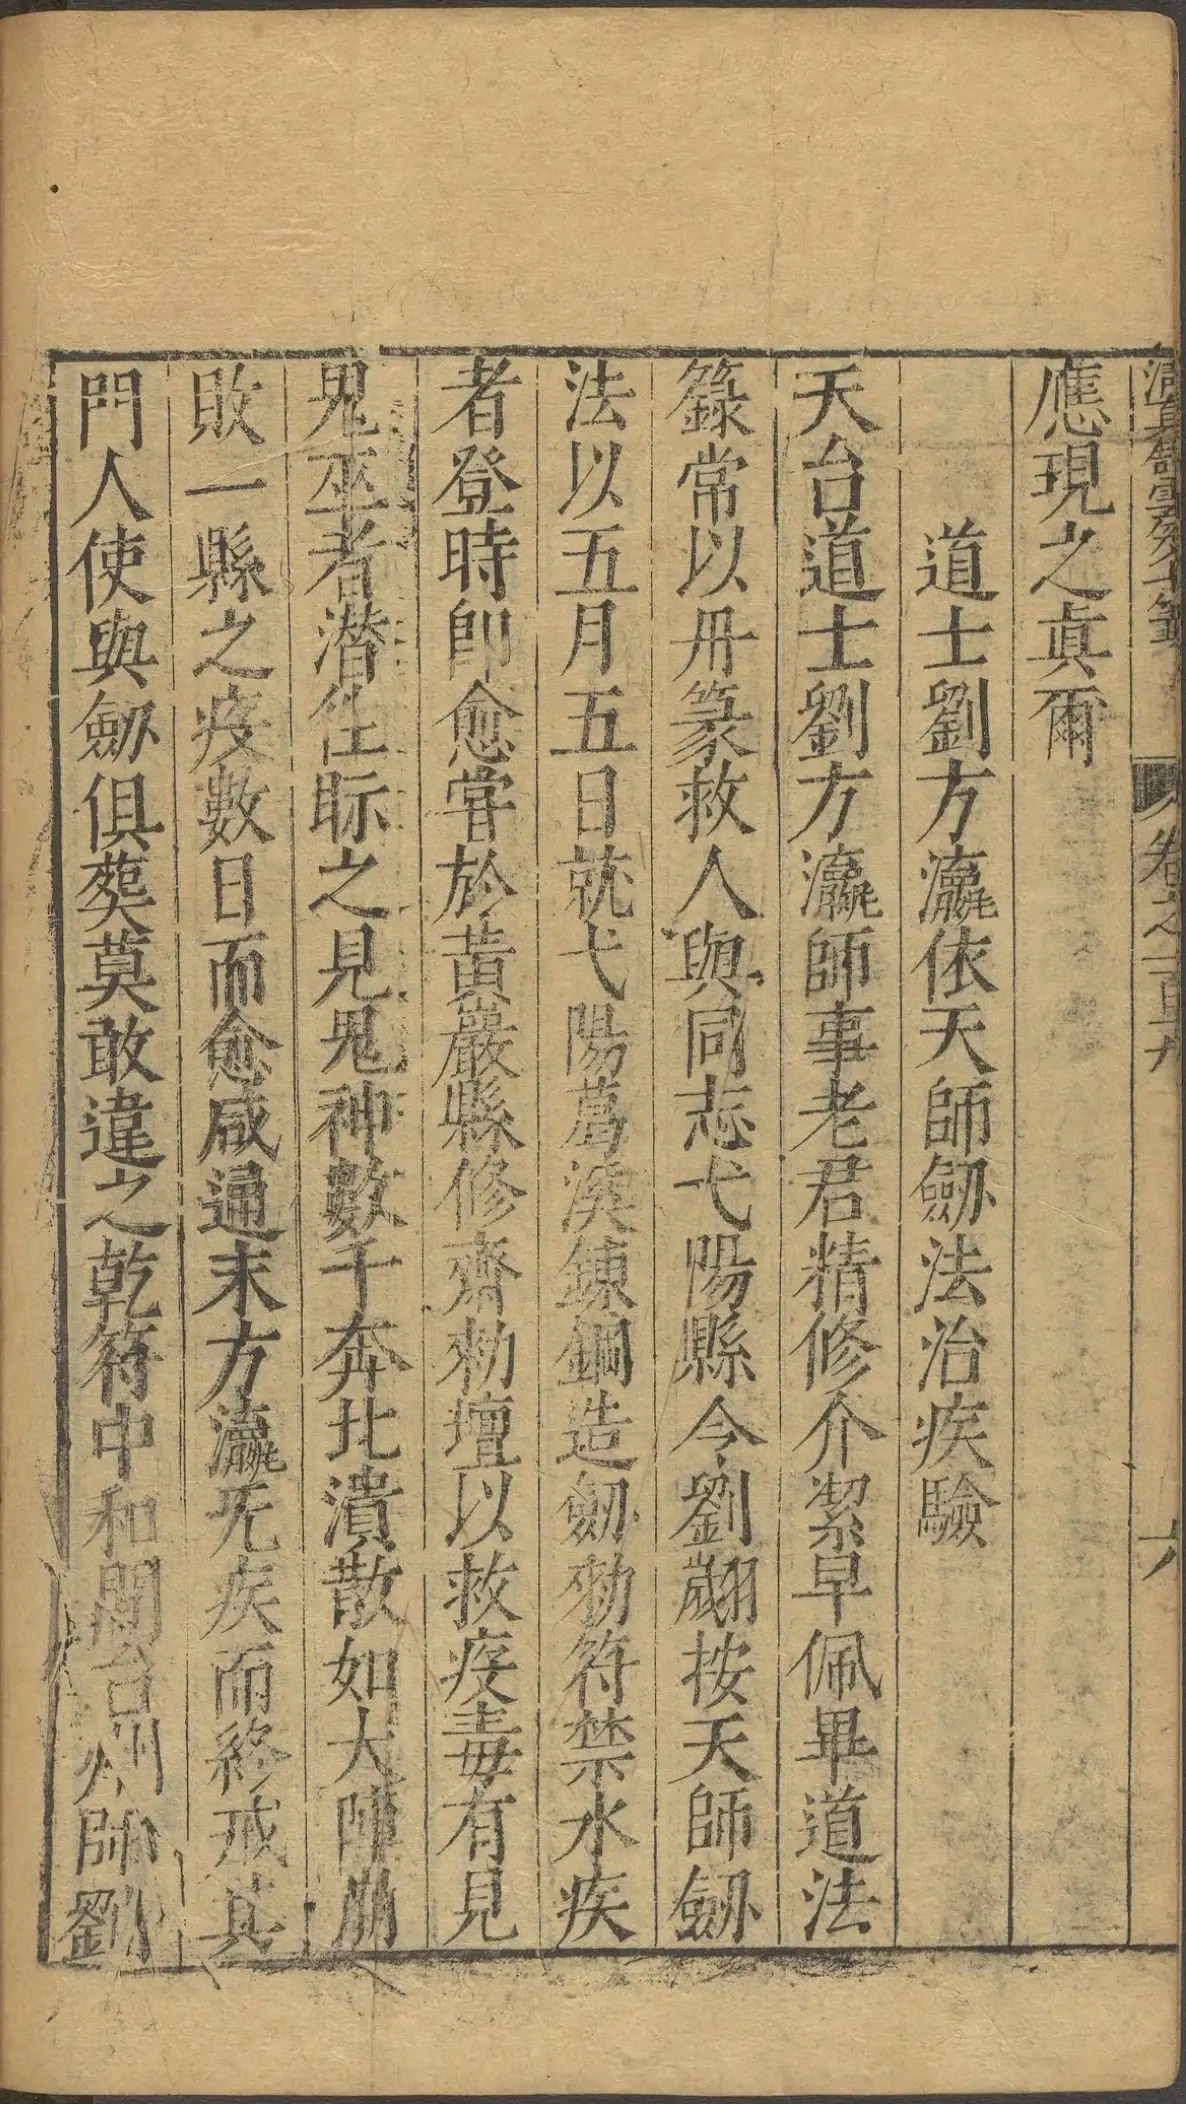 卷之一百十九
六
應現之真爾
道士劉方瀛依天師劒法治疾驗
天台道士劉方瀛師事老君精修介潔早佩畢道法
籙常以丹篆救人與同志弋陽縣令劉翽按天師劒
法以五月五日就弋陽葛溪鍊鋼造劒勑符禁水疾
者登時即愈嘗於黃巖縣修齋勑壇以救疫毒有見
鬼巫者潛往眎之見鬼神數千奔北潰散如大陣崩
敗一縣之疫數日而愈咸通末方瀛无疾而終戒其
門人使與劒俱葬莫敢違之乾符中和間台州帥劉